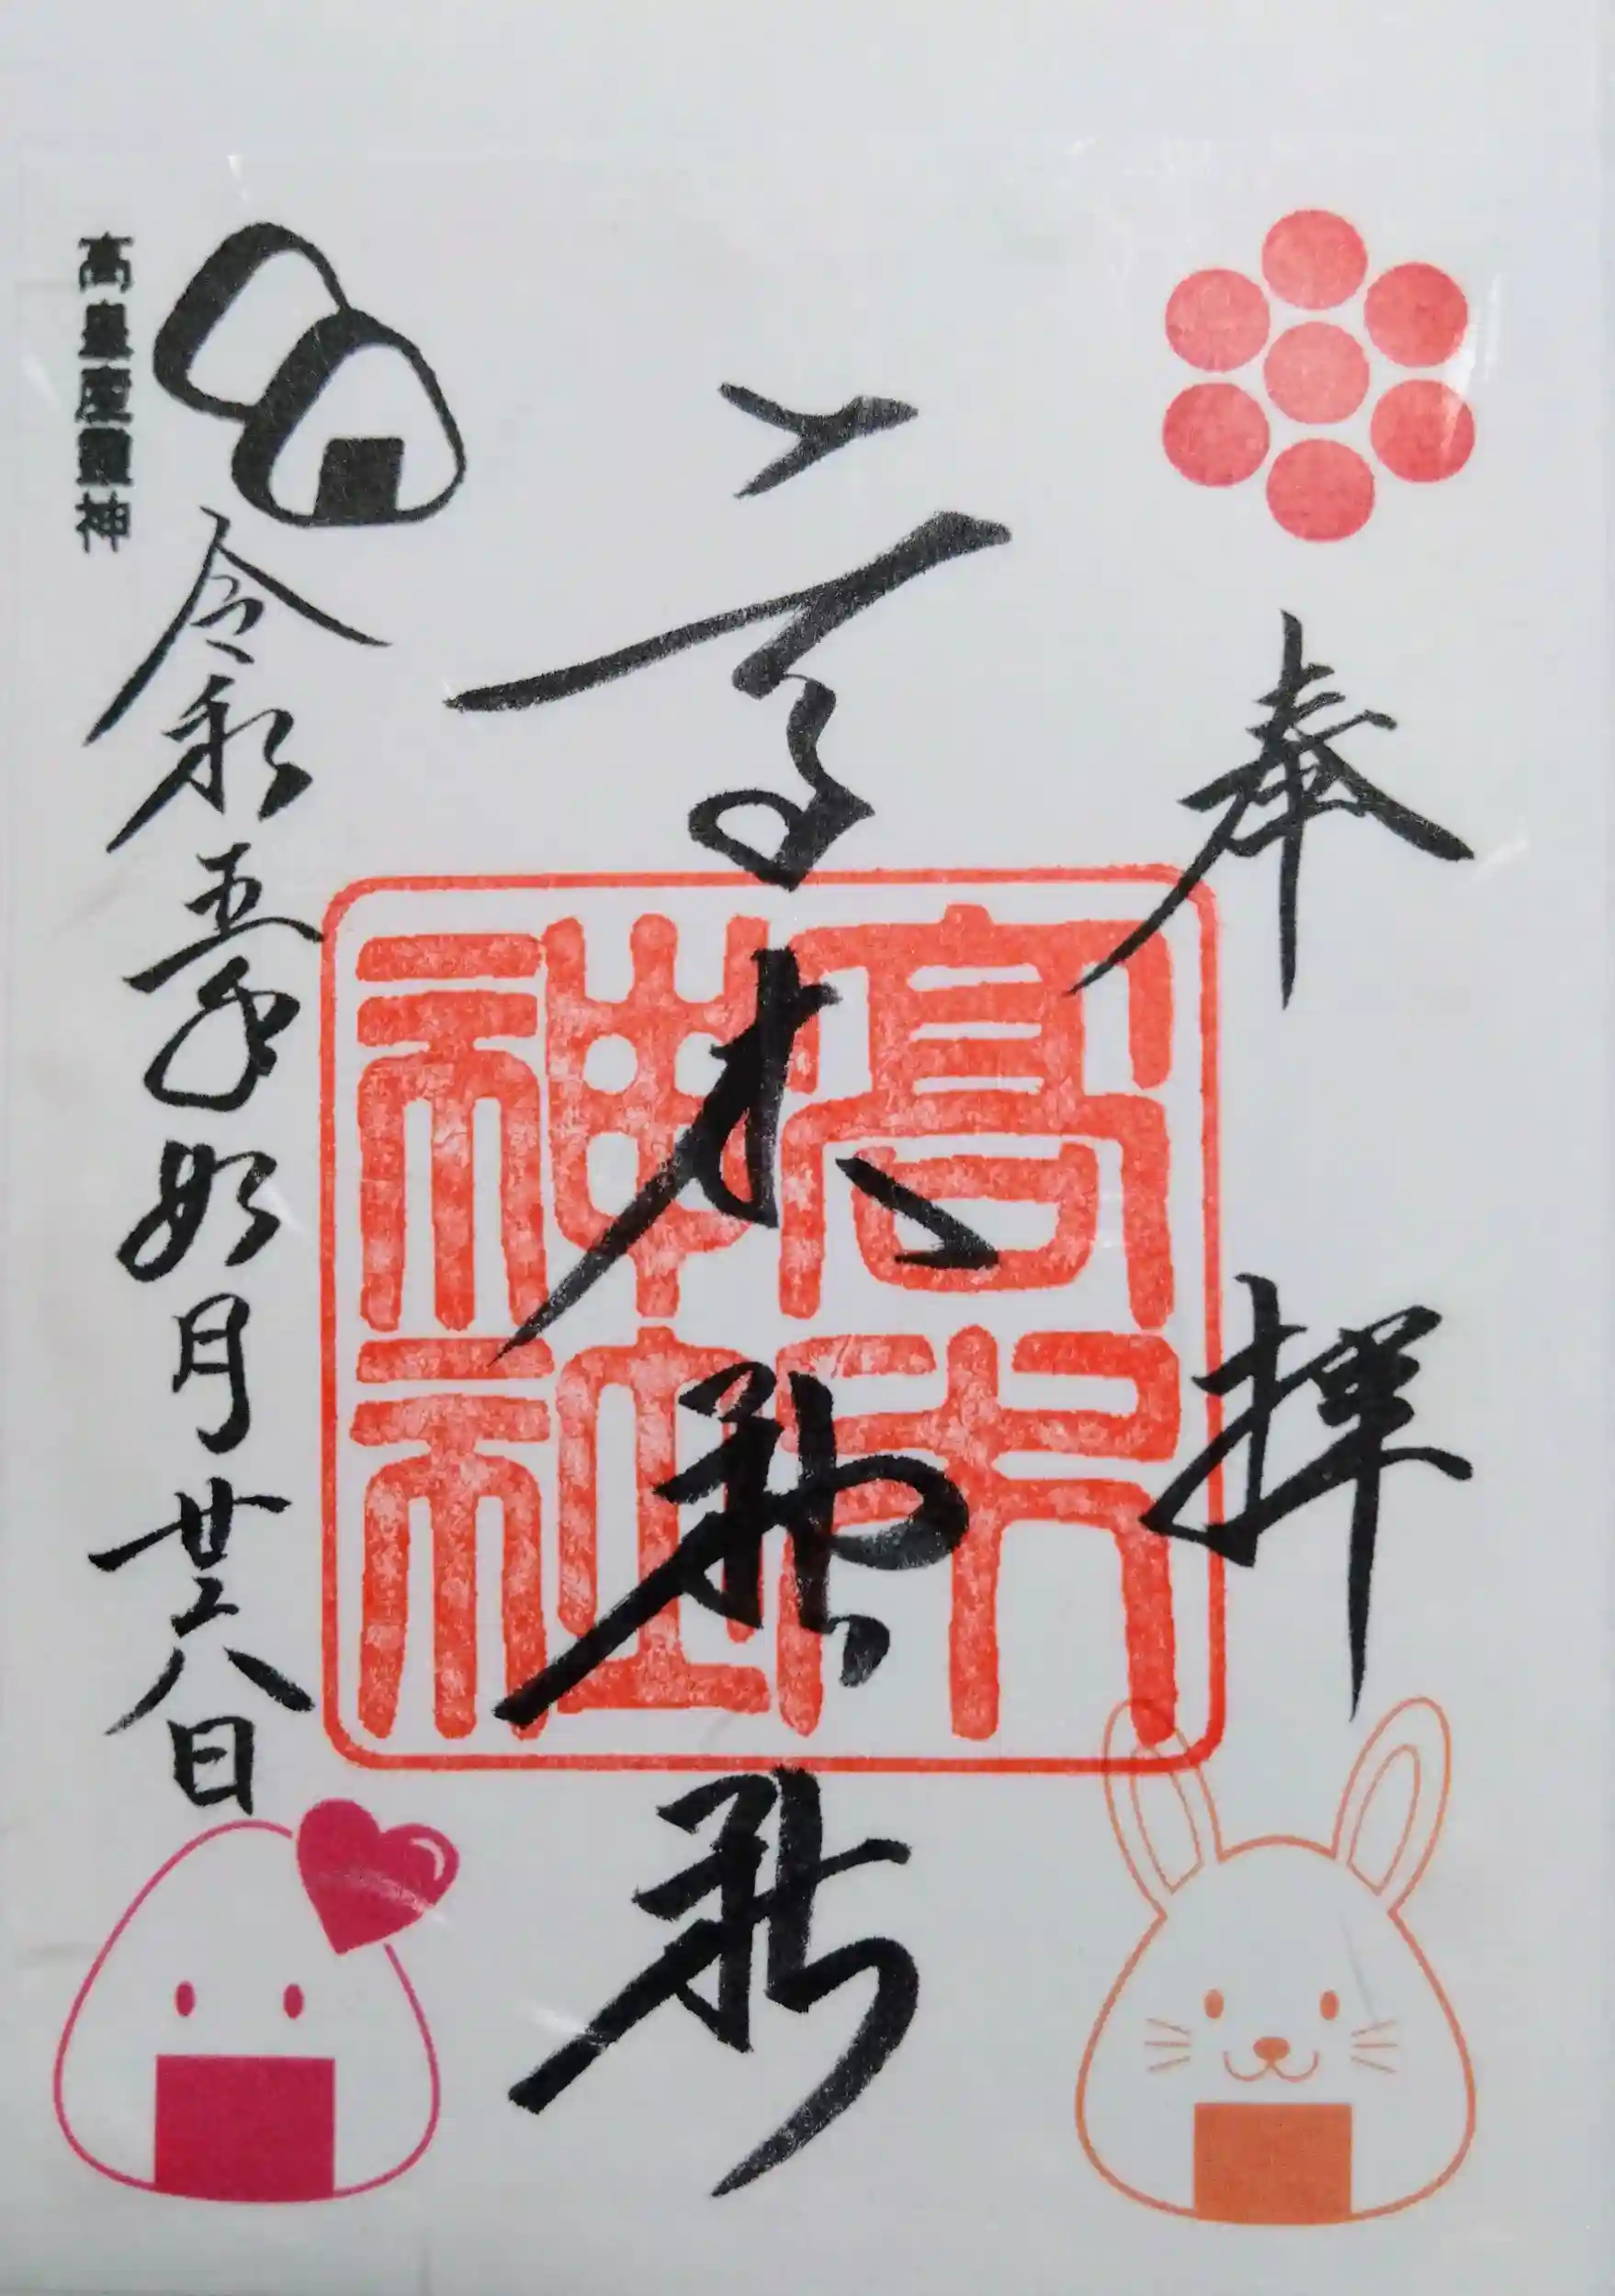 奉拝
高木神社
高木神社
令和五年如月廿六日
高皇産霊神